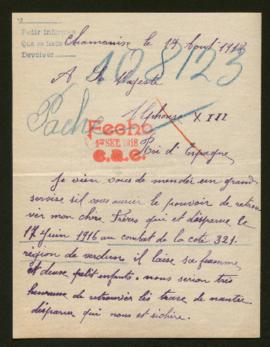 Pedir informes
Que se
Devolver
Chamanise le 14 Aout 1918
108123
A Sa Majesté
Alphonse XIII
Roi d'Espagne
Fecho
SET. 1918
Je vien vous de mender un grand
servise sil vous aurier le pouvoir de retrou
ver mon chere frères qui et disparue le
17 juin 1916 au combat de la cote 321.
région de verdun il laise sa femme
et deuse petit enfants. nous serion très
heureuse de retrouver les trase de
disparue qui nous et